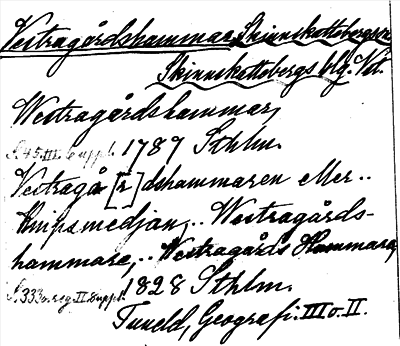 Vestragårdshammar, Skinnskattebergssn
Skinnskattebergs blg. Vtl.
Westragårdshammar,
S. 45. III. Suppl. 1789 Sthlm.
Vestragå[r]dshammaren eller..
Knipsmedjan,.. Westragårds-
hammare,.. Westragårds Hammare,
S. 333 o. reg. II. Suppl. 1828 Sthlm.
Tuneld, Geografi. III o. II.